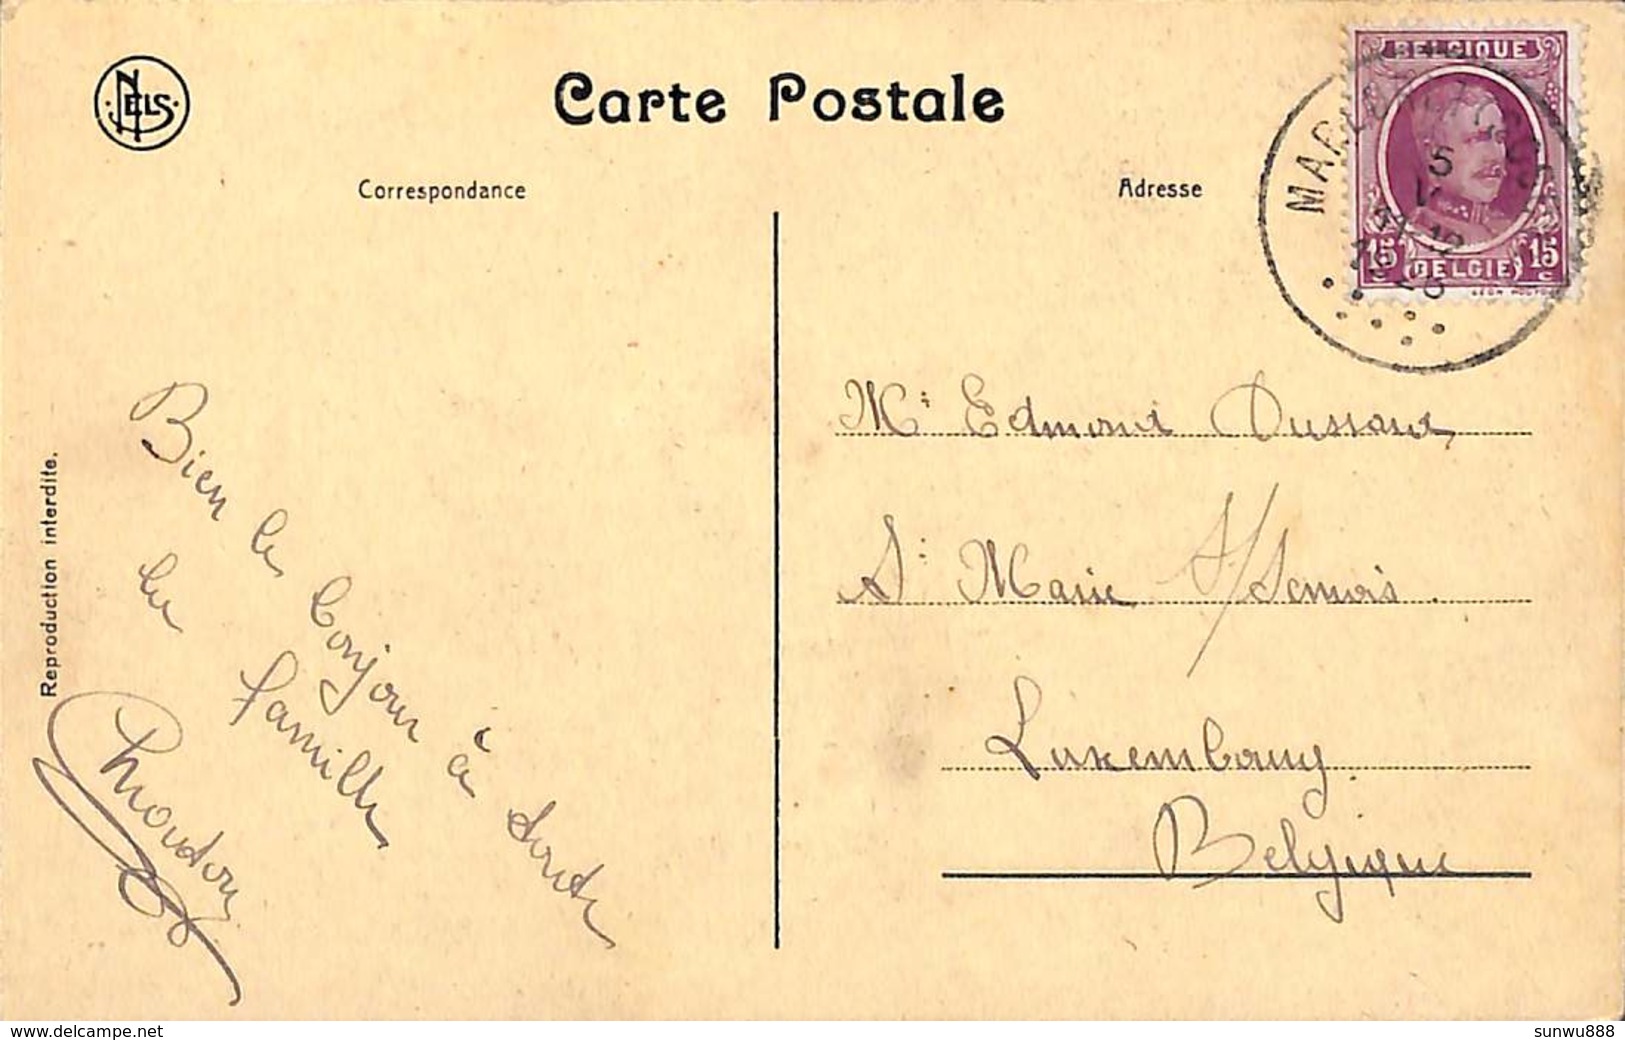 NELS
Carte Postale
Correspondance
Adresse
BELGIQUE
5
11-12
15 BELGIE 15
c
Reproduction interdite.
Bien le bonjour à toute
la famille
Mr Edmond
St Marie s/Semois
Luxembourg
Belgique
www.delcampe.net
sunwu888